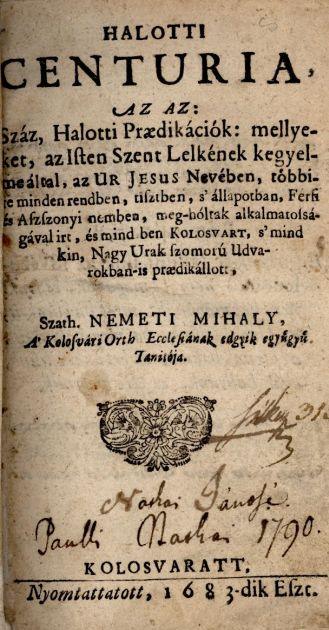 HALOTTI
CENTURIA,
AZ AZ:
Száz, Halotti Prædikációk: mellye-
ket, az Iſten Szent Lelkének kegyel-
me által, az UR JESUS Nevében, többi-
re minden rendben, tiſztben, s' állapotban, Férfi
és Aſzſzonyi nemben, meg-hóltak alkalmatoſsá-
gával irt, és mind ben KOLOSVART, s' mind
kin, Nagy Urak ſzomorú Udva-
rokban-is prædikállott,
Szath. NEMETI MIHALY,
A' Kolosvári Orth Eccleſiának edgyik együgyű
Tanitója.
Naskai Jánosé
Paulli Naskai 1790.
KOLOSVARATT,
Nyomtattatott, 1683-dik Eſzt.